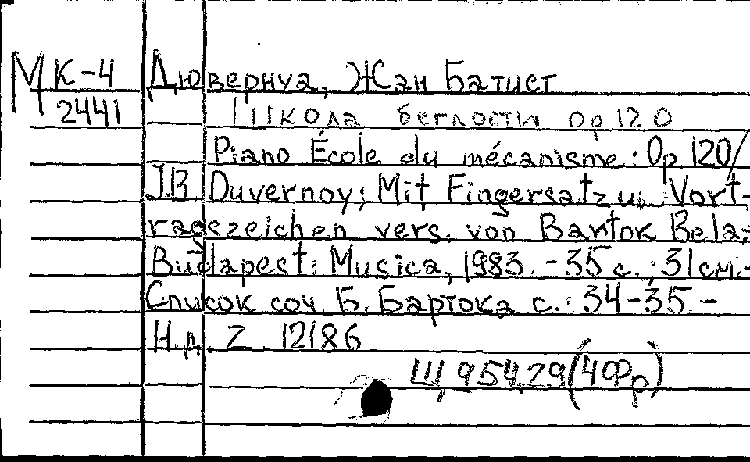 МК-4 Дювернуа, Жан Батист
2441 Школа беглости Op 120
Piano École du mécanisme: Op 120/
J.B Duvernoy; Mit Fingersatz u. Vort-
ragszeichen vers. von Bartok Bela;
Budapest: Musica, 1983. - 35 с.; 31 см.-
Список соч Б. Бартока с.: 34-35.-
Н.д. Z. 12186
Щ95429(4Фр)